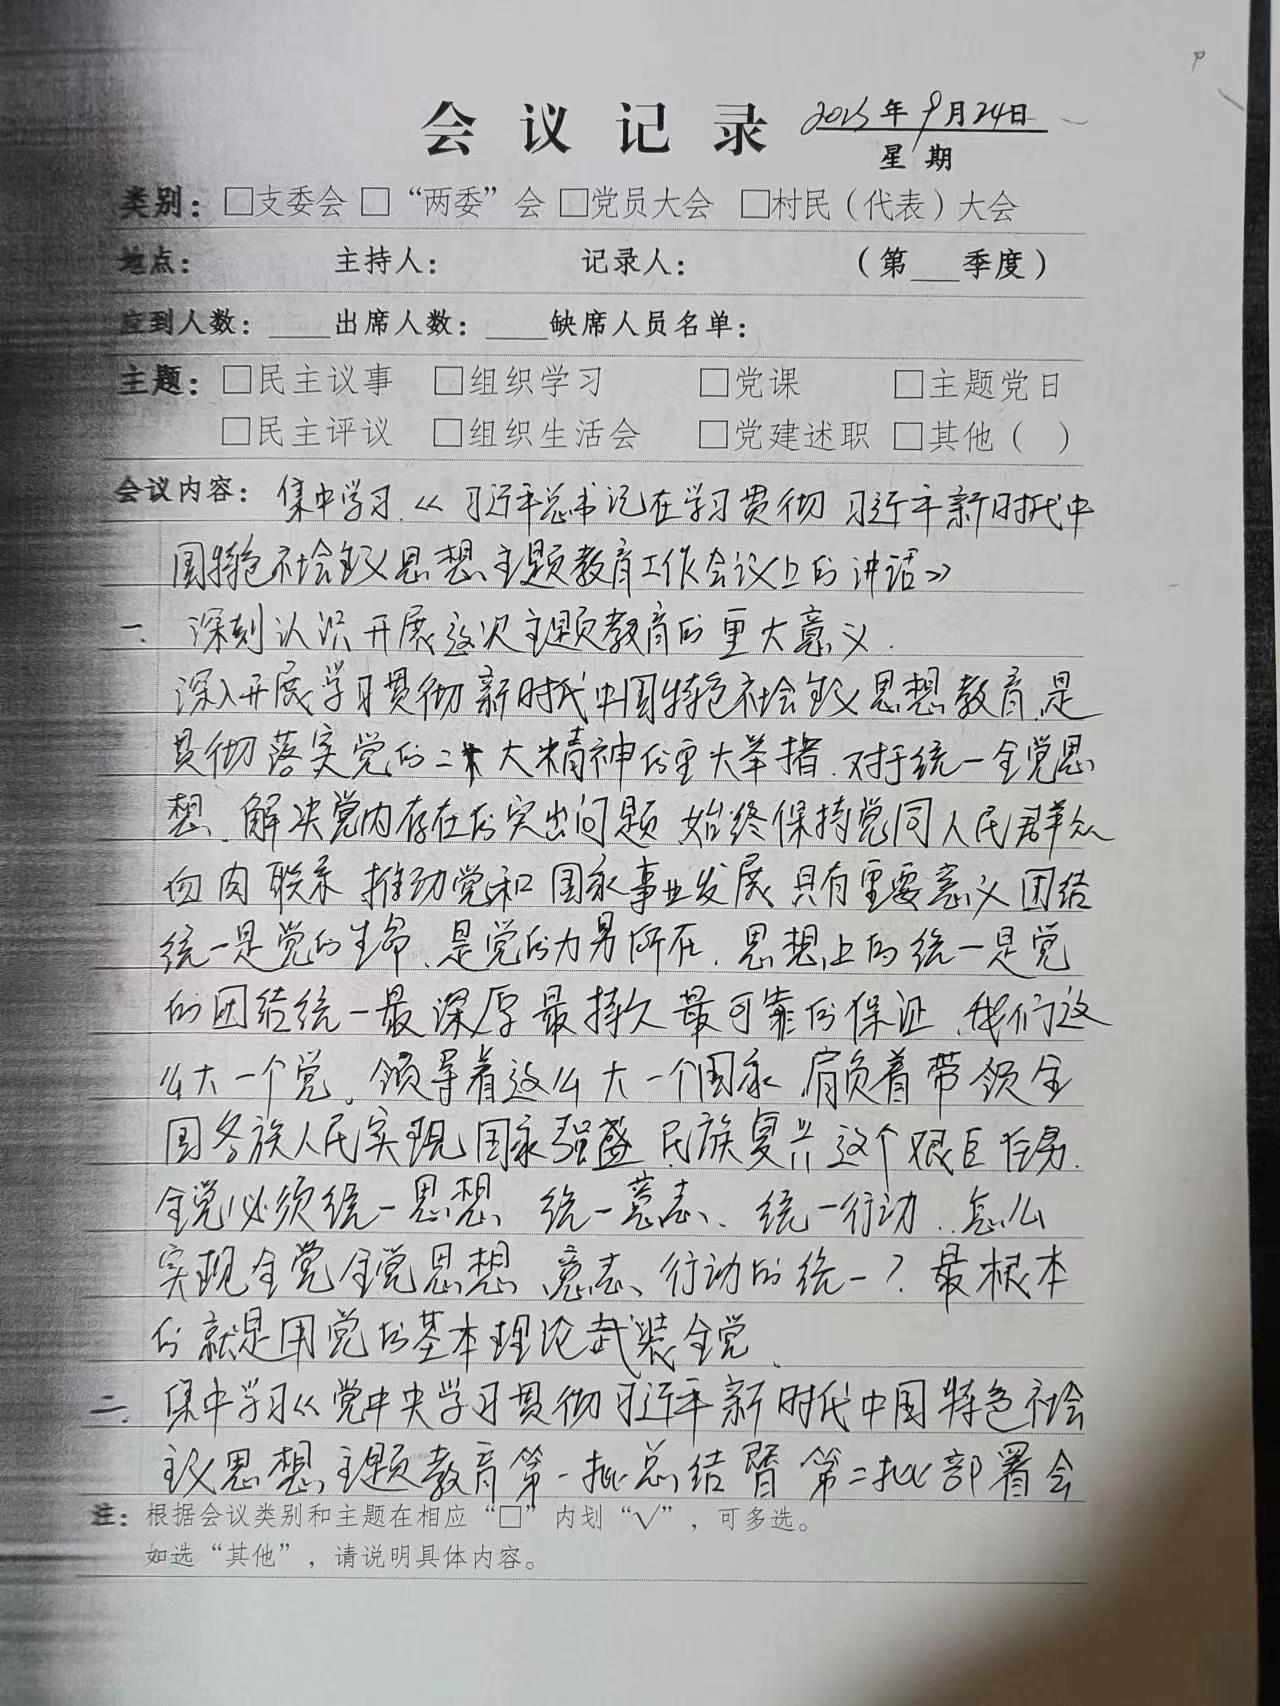 会议记录 2023年9月24日
星期
类别：□支委会 □“两委”会 □党员大会 □村民（代表）大会
地点： 主持人： 记录人： （第___季度）
应到人数：____出席人数：____缺席人员名单：
主题：□民主议事 □组织学习 □党课 □主题党日
□民主评议 □组织生活会 □党建述职 □其他（ ）
会议内容：集中学习、《习近平总书记在学习贯彻习近平新时代中
国特色社会主义思想主题教育工作会议上的讲话》
一、深刻认识开展这次主题教育的重大意义.
深入开展学习贯彻新时代中国特色社会主义思想教育,是
贯彻落实党的二十大精神的重大举措.对于统一全党思
想、解决党内存在的突出问题 始终保持党同人民群众
血肉联系 推动党和国家事业发展 具有重要意义 团结
统一是党的生命、是党的力量所在.思想上的统一是党
的团结统一最深厚最持久最可靠的保证、我们这
么大一个党。领导着这么大一个国家 肩负着带领全
国各族人民实现国家强盛 民族复兴这个艰巨任务.
全党必须统一思想、统一意志、统一行动、怎么
实现全党全党思想、意志、行动的统一？最根本
的就是用党的基本理论武装全党、
二、集中学习《党中央学习贯彻习近平新时代中国特色社会
主义思想主题教育第一批总结暨第二批部署会
注：根据会议类别和主题在相应“□”内划“√”，可多选。
如选“其他”，请说明具体内容。